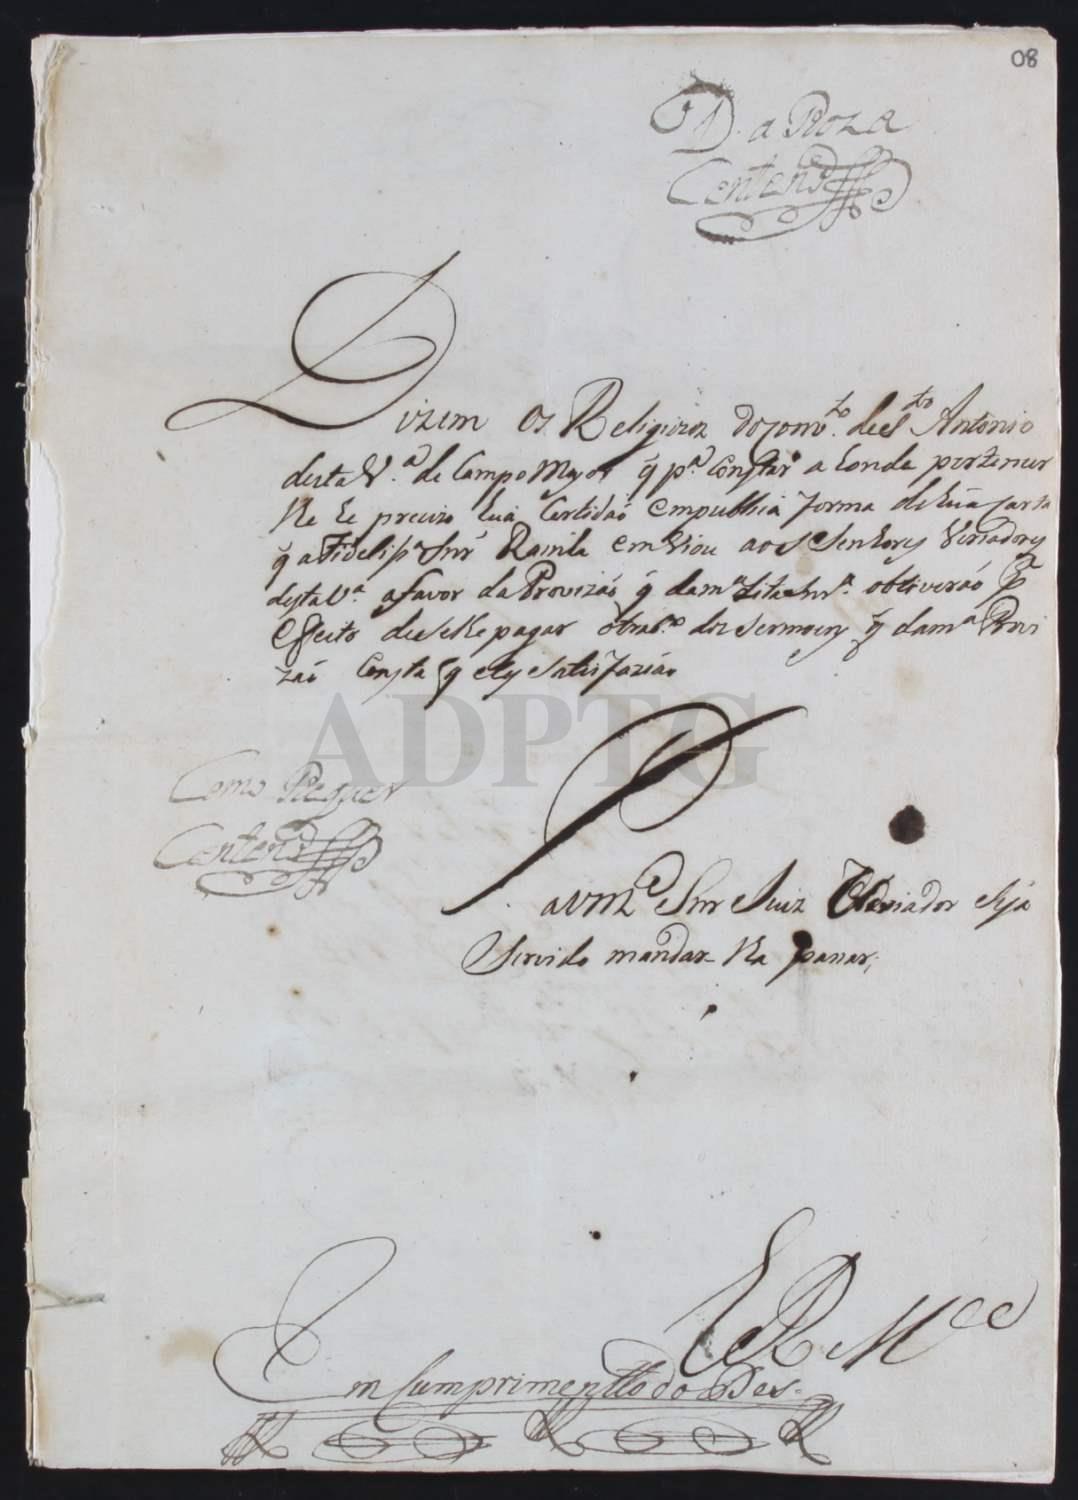 08
D. a Roza
Centeno
Dizem os Religiozos do Conv.to de S.to Antonio
desta V.a de Campo Mayor q̃ p.a Constar a honde pertenser
lhe he precizo hua Certidaõ em publica forma de huã Carta
q̃ a Fidelis.a Snr.a Rainha emViou aos Senhores Veriadores
desta V.a a favor da Provizaõ q̃ da m.a dita Snr.a obtiveraõ p.a
Efeito de se lhe pagar dos sermoens q̃ da m.a Provi
zaõ Consta q̃ eles satisfaziaõ
ADPTG
Como Requer
Centeno
P
a Vm.ce Snr Juiz Veriador seja
Servido mandar lha pasar;
E R M.ce
Em Cumprimentto do Des.